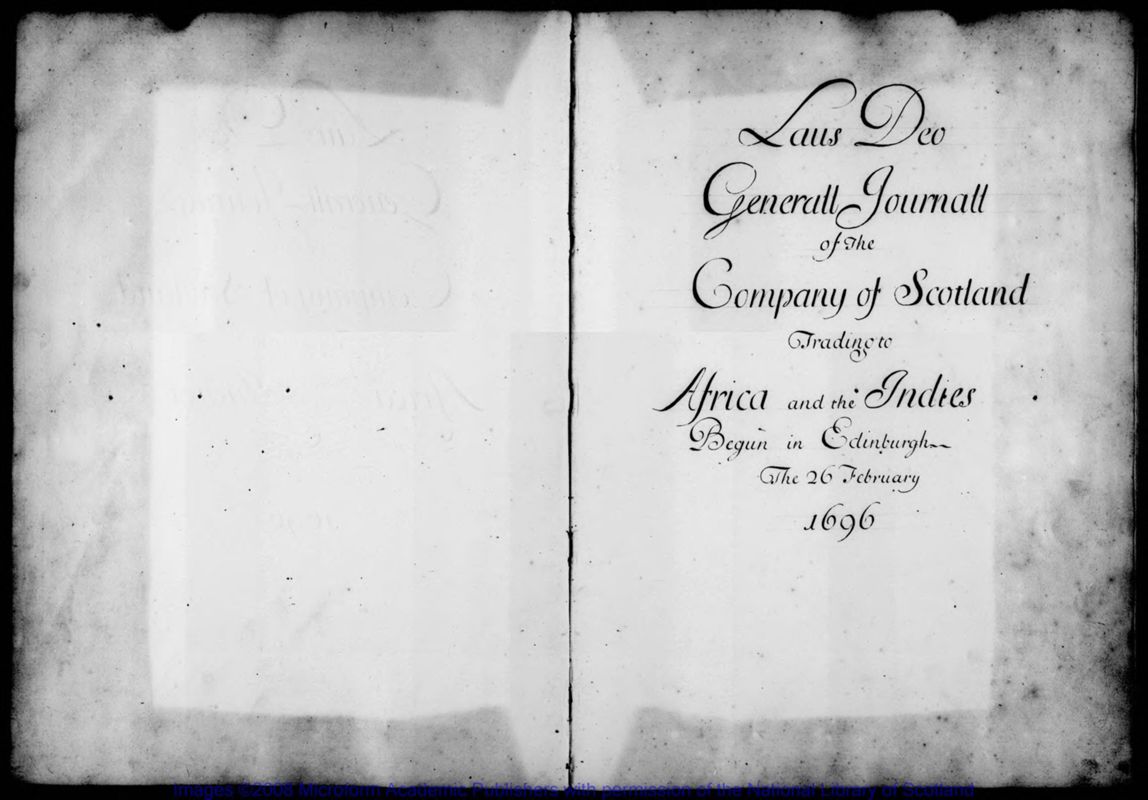 Laus Deo
Generall Journall
of The
Company of Scotland
Trading to
Africa and the Indies
Begun in Edinburgh
The 26 February
1696
Images ©2008 Microform Academic Publishers with permission of the National Library of Scotland